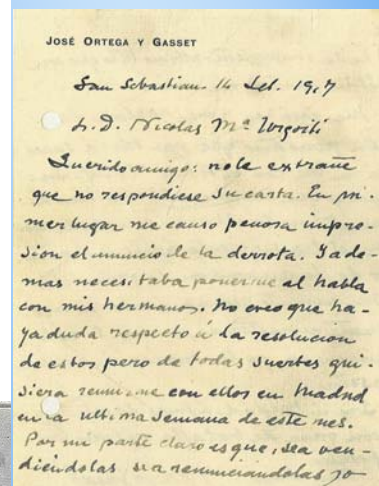 JOSÉ ORTEGA Y GASSET
San Sebastian - 14 Set. 1917
S. D. Nicolas Mª Urgoiti
Querido amigo: no le extrañe
que no respondiese su carta. En pri-
mer lugar me causo penosa impre-
sion el anuncio de la derrota. Y ade-
mas necesitaba ponerme al habla
con mis hermanos. No creo que ha-
ya duda respecto á la resolucion
de estos pero de todas suertes qui-
siera reunirme con ellos en Madrid
en la ultima semana de este mes.
Por mi parte claro es que, sea ven-
diendolas sea renunciandolas yo